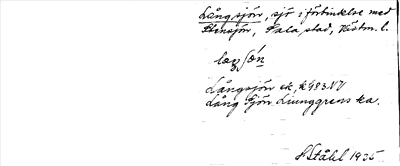 Långsjön, sjö i förbindelse med
Stensjön, Sala stad, Västm. l.
Långsjön ek, k 983 NV
Lång Sjön Liunggrens ka.
H Ståhl 1935